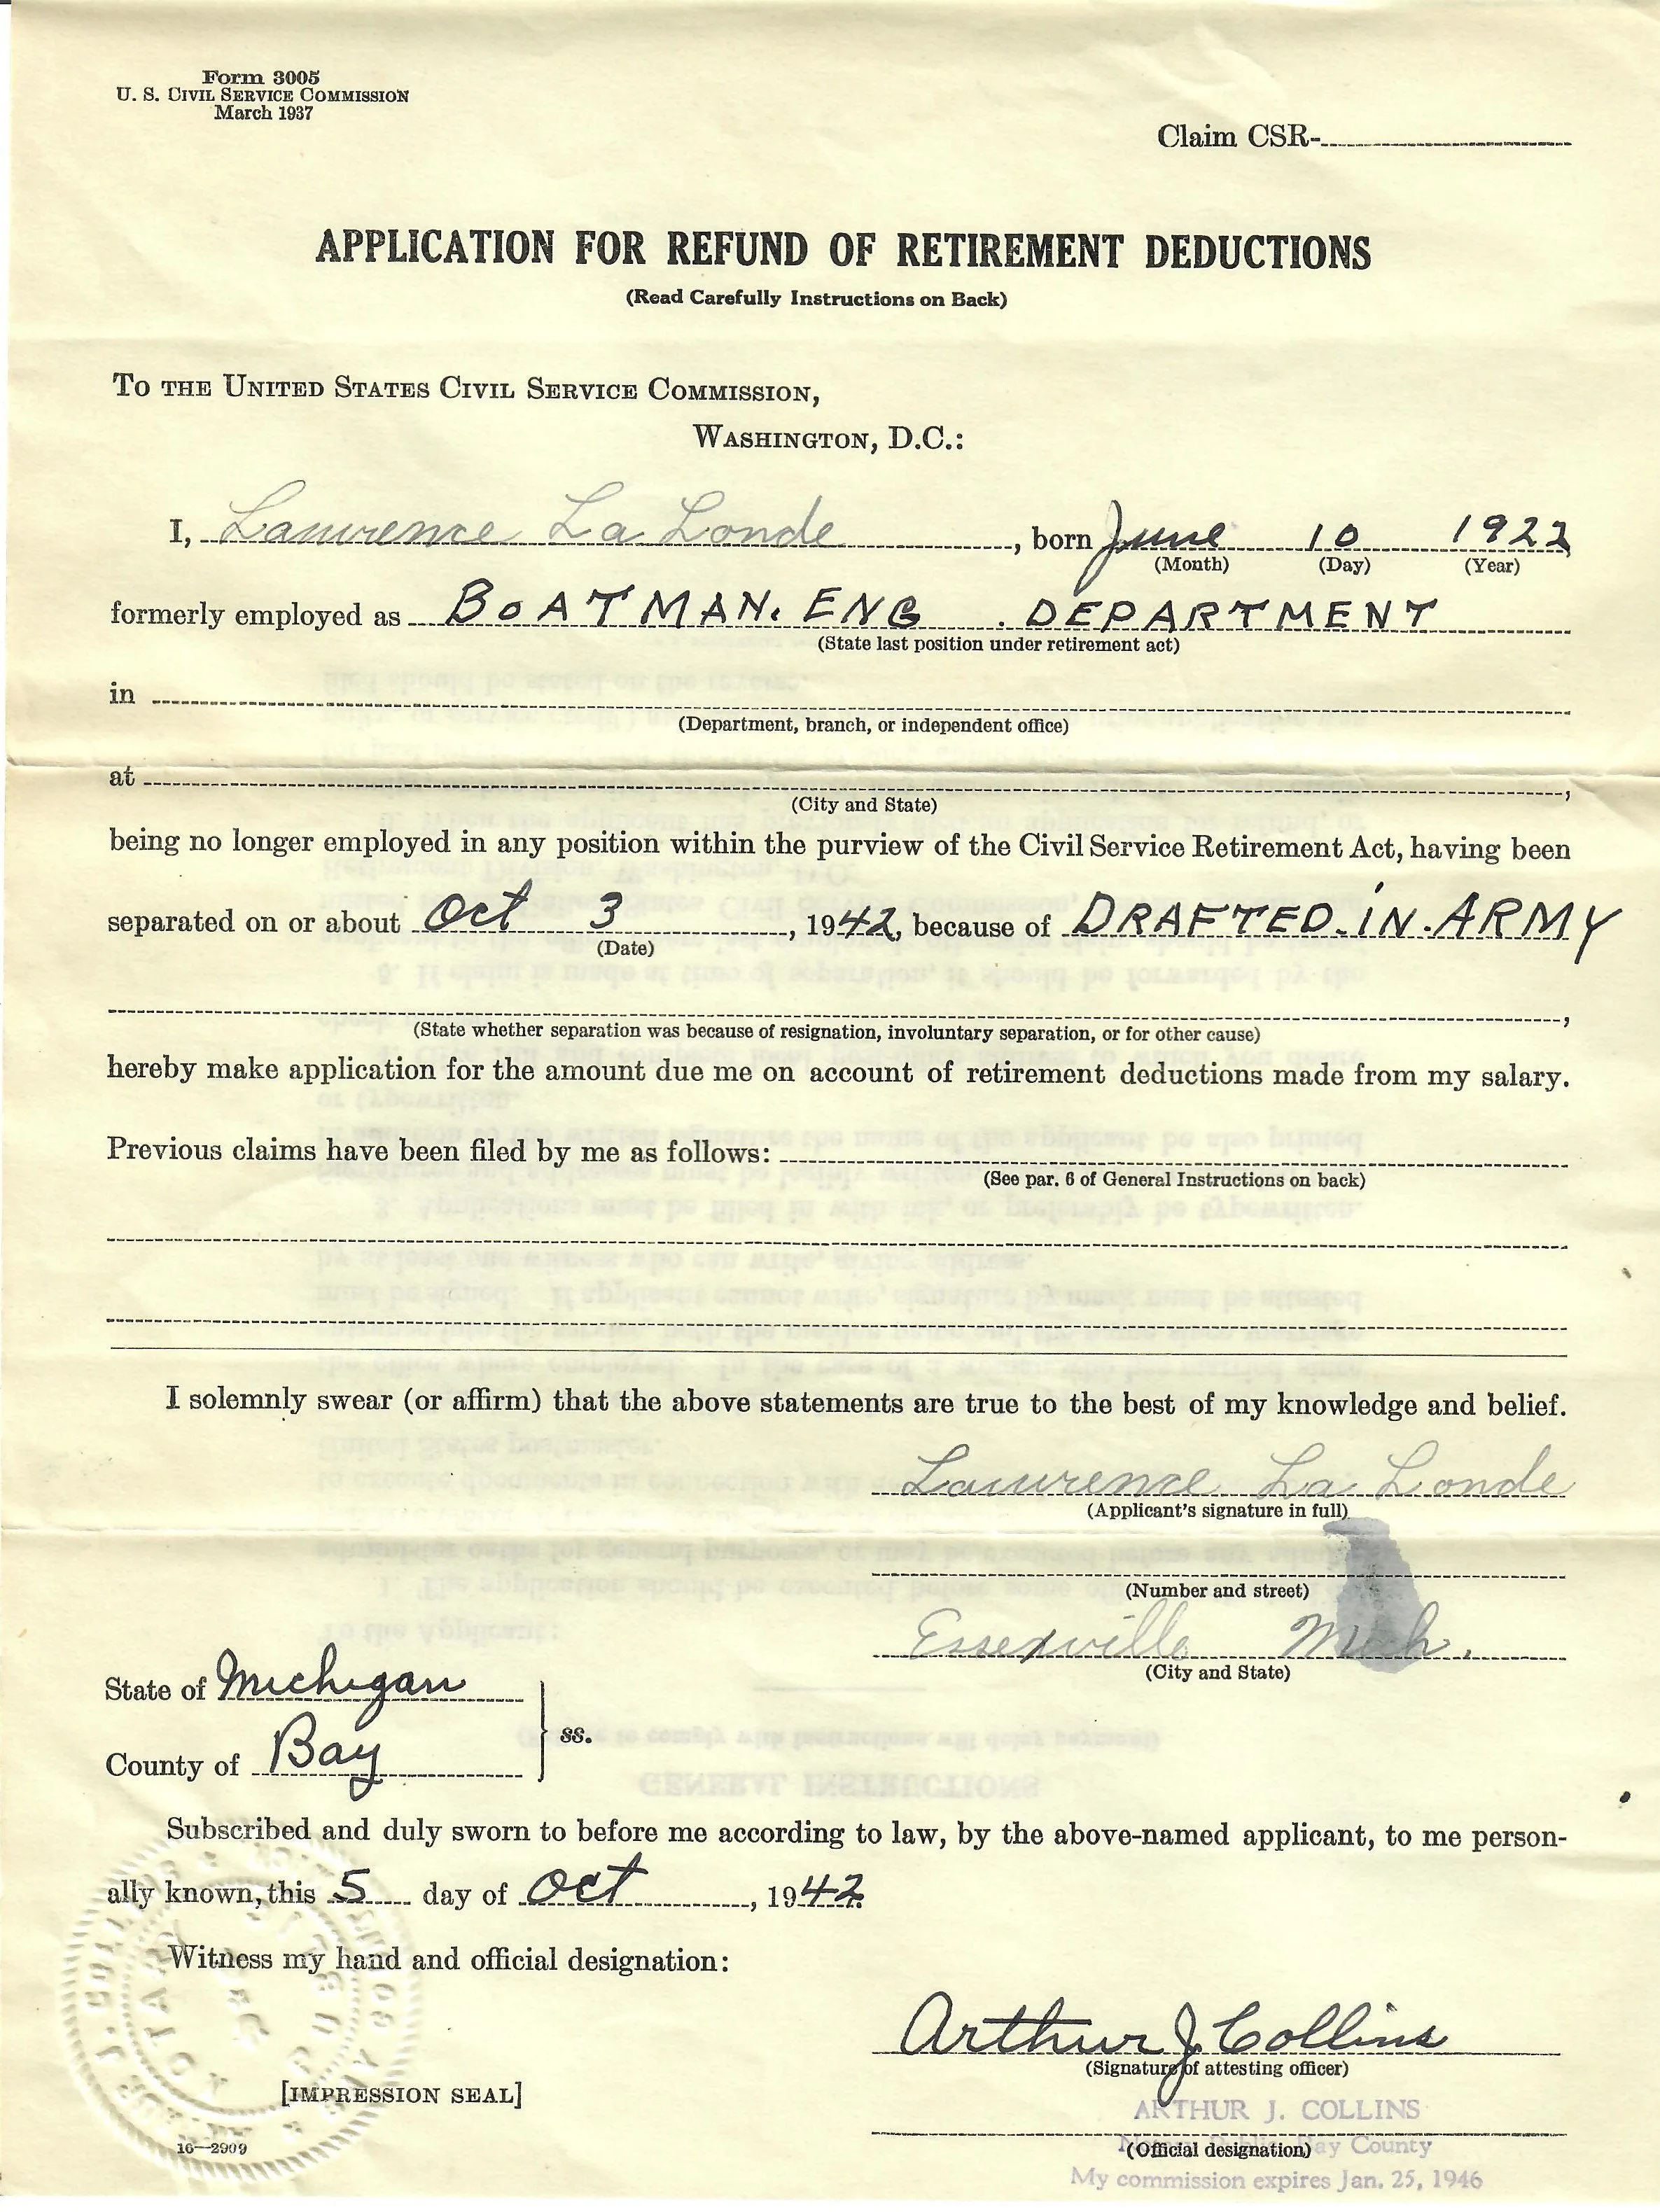 Form 3005
U. S. CIVIL SERVICE COMMISSION
March 1937
Claim CSR-
APPLICATION FOR REFUND OF RETIREMENT DEDUCTIONS
(Read Carefully Instructions on Back)
TO THE UNITED STATES CIVIL SERVICE COMMISSION,
WASHINGTON, D.C.:
I, Lawrence La Londe, born June 10 1922
(Month) (Day) (Year)
formerly employed as BOATMAN. ENG. DEPARTMENT
(State last position under retirement act)
in
(Department, branch, or independent office)
at ,
(City and State)
being no longer employed in any position within the purview of the Civil Service Retirement Act, having been
separated on or about Oct 3, 1942, because of DRAFTED IN ARMY
(Date)
,
(State whether separation was because of resignation, involuntary separation, or for other cause)
hereby make application for the amount due me on account of retirement deductions made from my salary.
Previous claims have been filed by me as follows:
(See par. 6 of General Instructions on back)
I solemnly swear (or affirm) that the above statements are true to the best of my knowledge and belief.
Lawrence La Londe
(Applicant's signature in full)
(Number and street)
Essexville Mich.
(City and State)
State of Michigan
ss.
County of Bay
Subscribed and duly sworn to before me according to law, by the above-named applicant, to me person-
ally known, this 5 day of Oct, 1942.
Witness my hand and official designation:
Arthur J Collins
(Signature of attesting officer)
[IMPRESSION SEAL]
ARTHUR J. COLLINS
Notary Public, Bay County
(Official designation)
My commission expires Jan. 25, 1946
16—2909